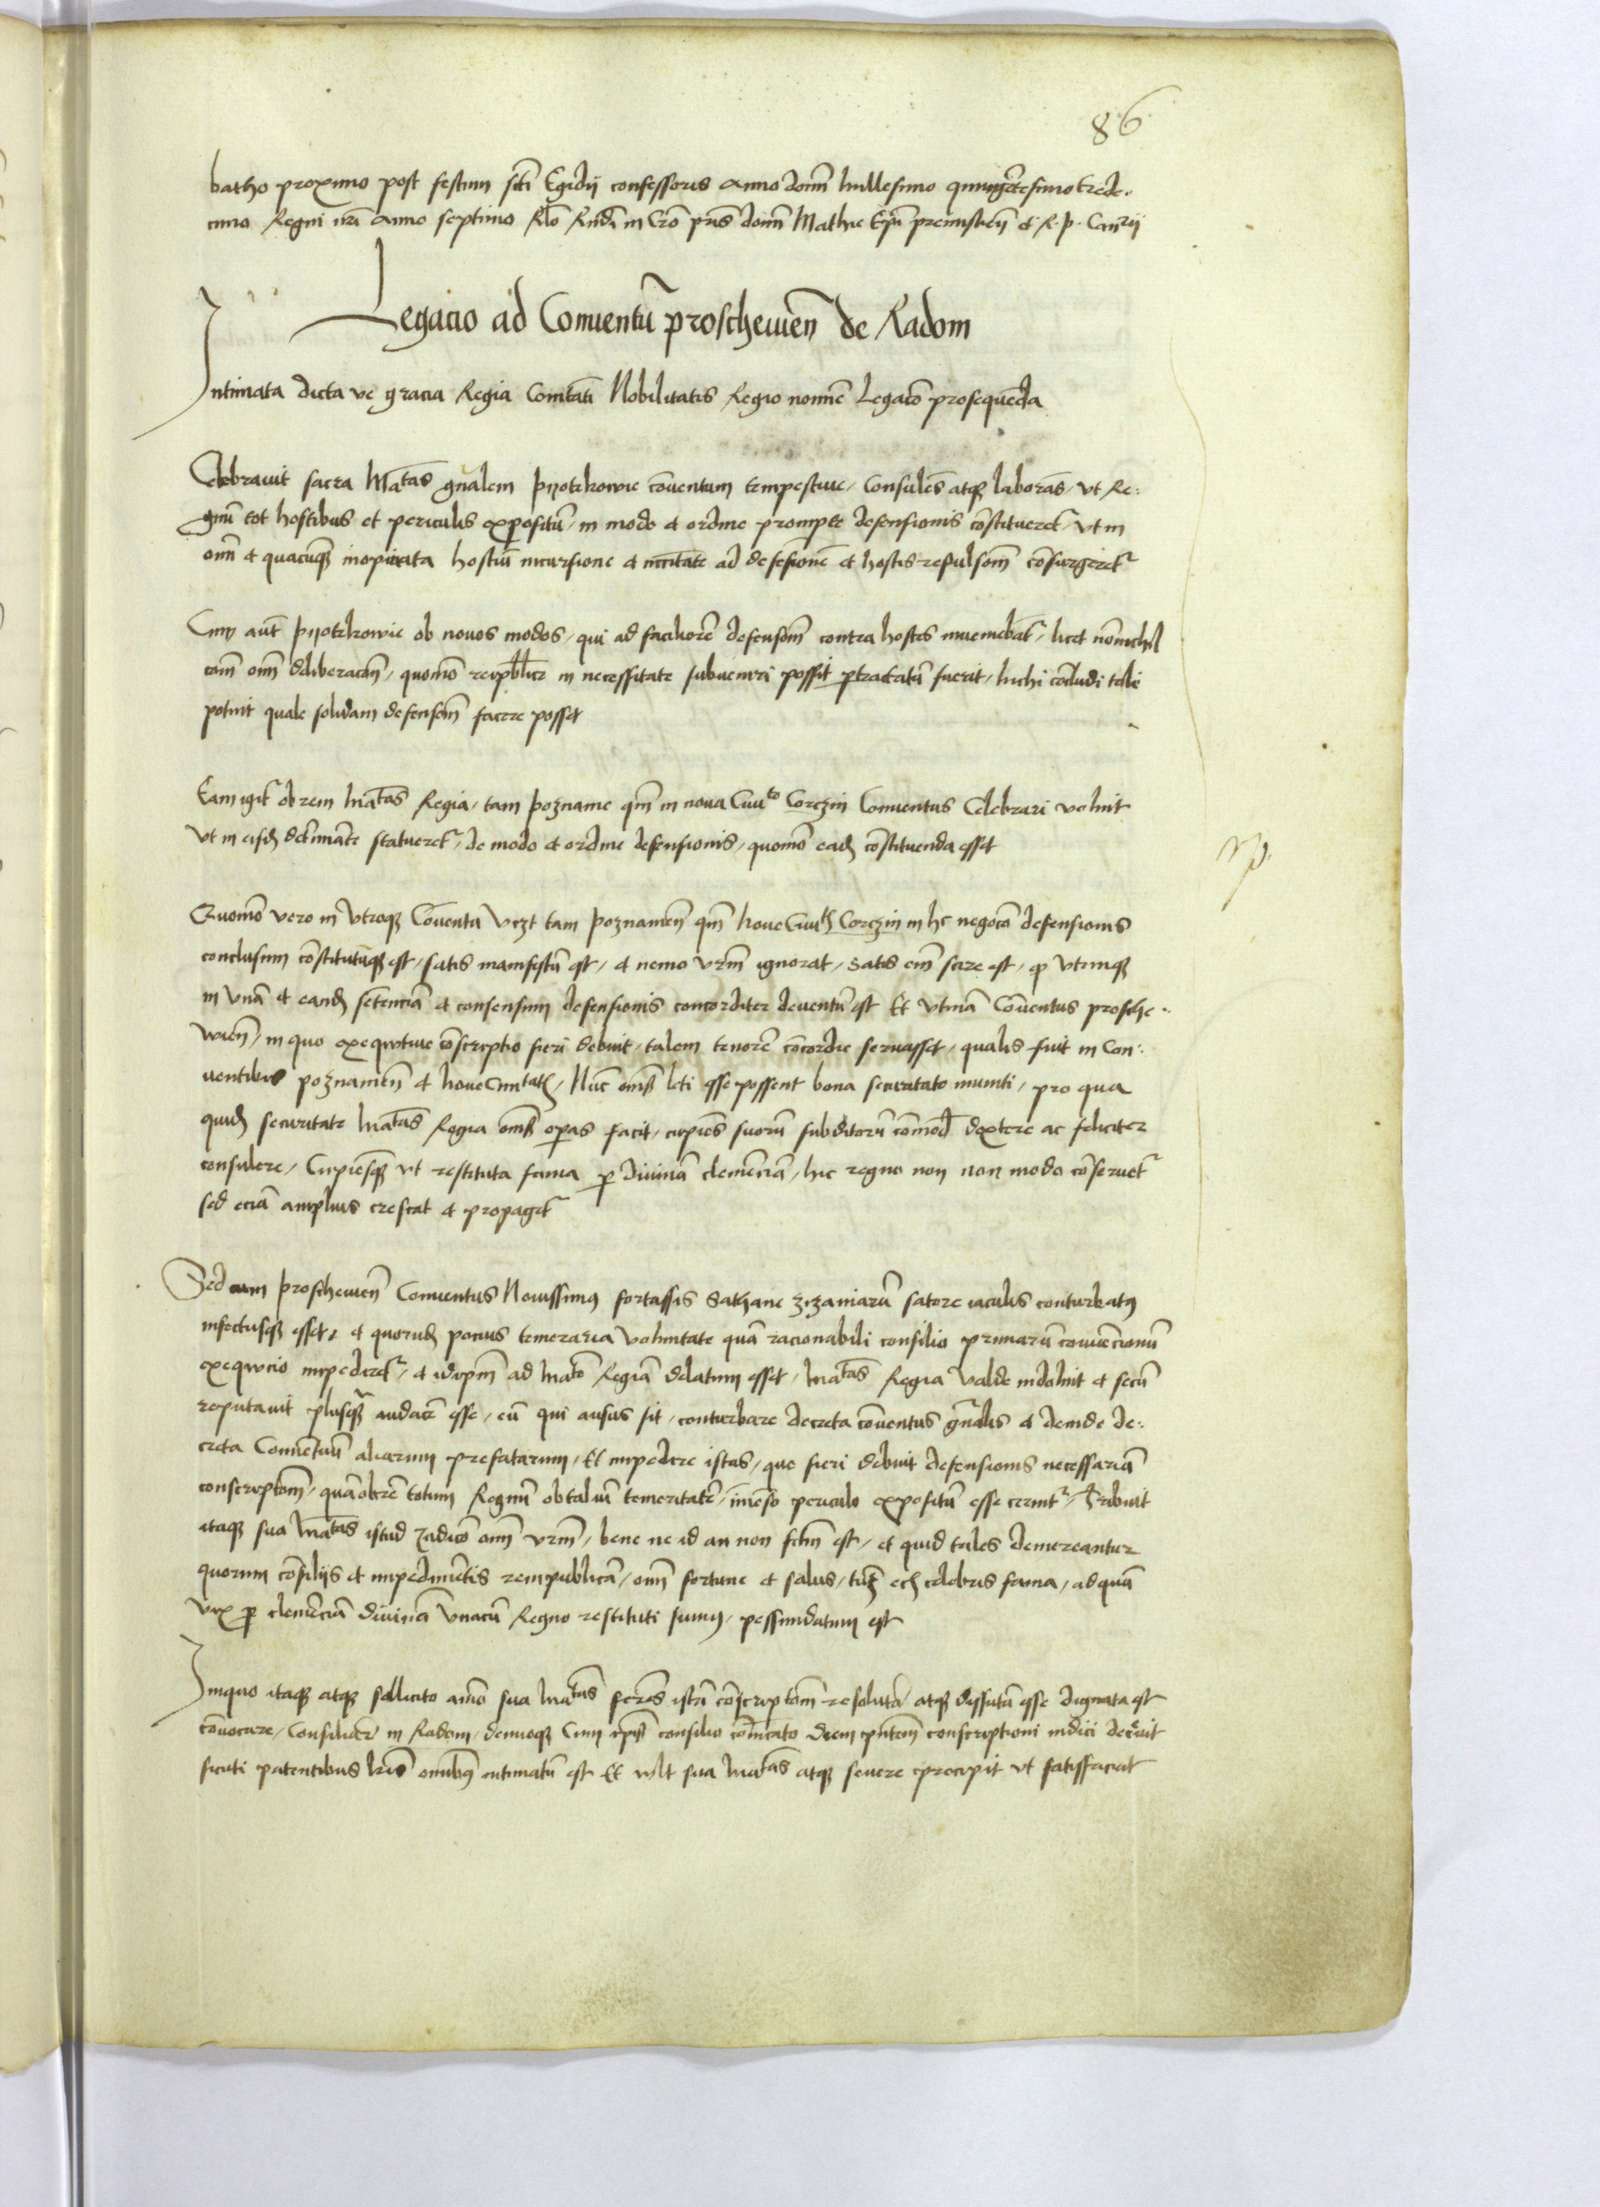 86
batho proximo post festum scti Egidij confessoris Anno domi Millesimo quingetesimo trede-
cimo Regni nri Anno septimo Rlo Rndi in Cro pris domi Mathie Epi premislien et R. P. Canrij
Legacio ad Conuentu proscheuien de Radom
Intimata dicta ve gracia Regia Comitati Nobilitatis Regio nomine Legaco prosequeda
Celebrauit sacra Matas gnalem pyotrkowie couentum tempestiue, Consules atque laboras, vt Re-
gnu tot hostibus et periculis expositu, in modo et ordine prompte defensionis constitueret, vt in
omi et quacuque inopinata hostiu incursione et necitate ad defesione et hostis repulsom consurgeret
Cum aut pyotrkowie ob nouos modos, qui ad faciliore defensom contra hostes inueniebat, licet nomichil
cum omi deliberacon, quomo reipblice in necessitate subueniri possit ptractatu fuerit, Nichi concludi tale
potuit quale solidam defensom facere posset
Eam igit ob rem Matas Regia, tam poznanie qm in noua Ciuto Corczin Conuentus Celebrari voluit
Vt in eisd determate statueret, de modo et ordine defensionis, quomo ead constituenda esset
Quomo vero in Vtroque Couentu vzt tam poznamen qm Noue Ciutis Corczin in hc negoco defensionis
conclusum constitutuque est, satis manifestu est, et nemo vrm ignorat, Satis eni scire est, q vtrinque
in vna et eand setencia et consensum defensionis concorditer deuentu est Et vtina Couentus prosche-
wien, in quo exeqwtiue conscriptio fieri debuit, talem tenore concordie seruasset, qualis fuit in Con-
uentibus poznamen et Noue Ciuitatis, Nuc omes leti esse possent bona securitate muniti, pro qua
quid securitate Matas Regia omes operas facit, cupies suoru subditoru comod dextere ac feliciter
consulere, Cupiesque vt restituta fama p diuina clemecia, hic regno non non modo conseruet
sed ecia amplius crescat et propaget
Sed cum proscheuien Conuentus Nouissimus fortassis Sathane zizaniaru satore iaculis conturbatus
infectusque esset, et quorud pocius temeraria volutate qua racionabili consilio primaru conuencionu
exeqwcio impediret, et id ipm ad Mate Regia delatum esset, Matas Regia valde indoluit et secu
reputauit plusqua audace esse, eu qui ausus sit, conturbare decreta couentus gnalis et deinde de-
creta Conuetuu aliarum prefatarum, Et impedire istas, que fieri debuit defensionis necessaria
conscriptom, qua obre totum Regnu ob taliu temeritate, imeso periculo expositu esse cernit, Tribuit
itaque sua Matas istud iudico omi vrm, bene ne id an non fctm est, et quid tales demereantur
quorum consilijs et impedimetis rempublica, omi fortune et salus, tuz eci celebris fama, ad qua
vix p clemecia diuina vnacu Regno restituti sumus, pessundatum est
Iniquo itaque atque sollicito aimo sua Matas feres ista conscriptom resoluta atque dissuta esse dignata est
couocare, Consiliar in Radom, denuoque Cum ipis consilio comicato diem pntem conscriptioni indici decreuit
sicuti patentibus Lris omibus intimatu est Et vlt sua Matas atque seuere precipit vt satisfaciat